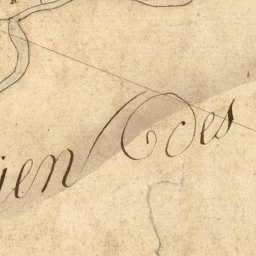 ien des